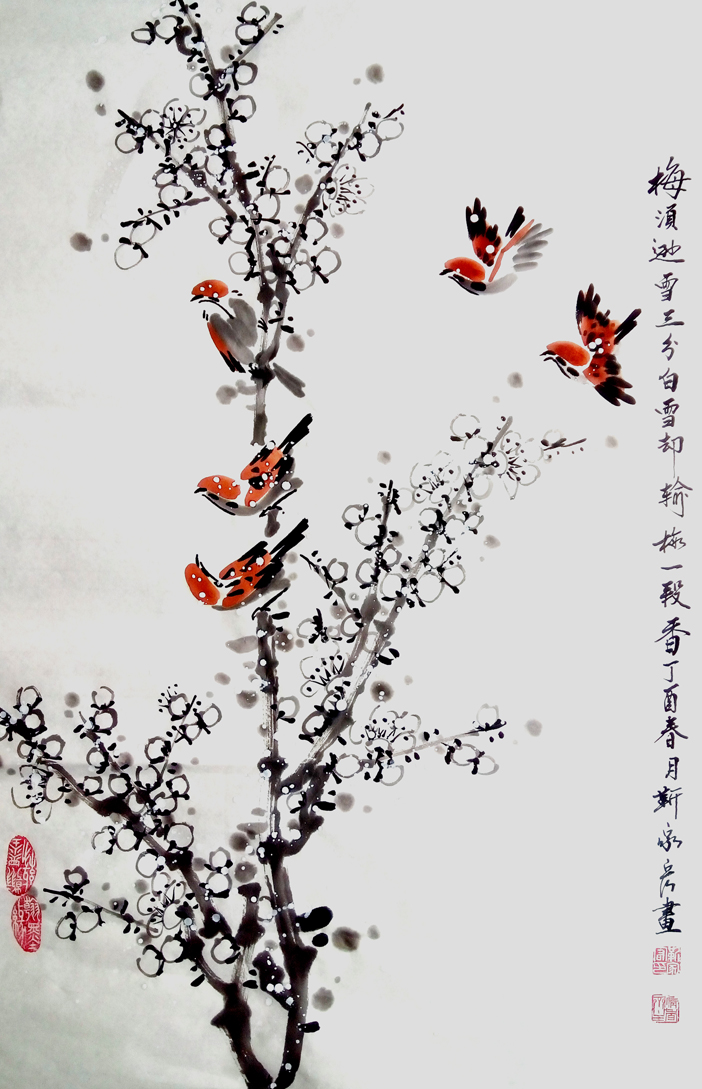 梅須遜雪三分白雪却輸梅一段香丁酉春月靳家房畫